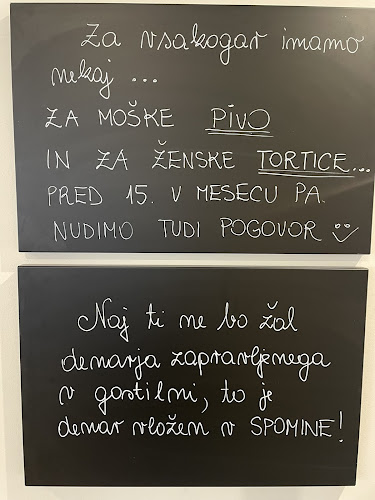 Za vsakogar imamo
nekaj ...
ZA MOŠKE PIVO
IN ZA ŽENSKE TORTICE...
PRED 15. V MESECU PA
NUDIMO TUDI POGOVOR
Naj ti ne bo žal
denarja zapravljenega
v gostilni, to je
denar vložen v SPOMINE!